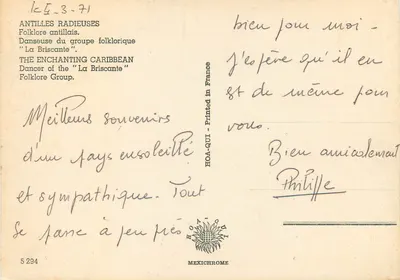 le I_3_71
ANTILLES RADIEUSES
Folklore antillais.
Danseuse du groupe folklorique
" La Briscante ".
THE ENCHANTING CARIBBEAN
Dancer of the " La Briscante "
Folklore Group.
Meilleurs souvenirs
d'un pays ensoleillé
et sympathique. Tout
se passe à peu près
bien pour moi -
J'espère qu'il en
est de même pour
vous.
Bien amicalement
Philippe
HOA-QUI - Printed in France
HOA-QUI
MEXICHROME
S 294